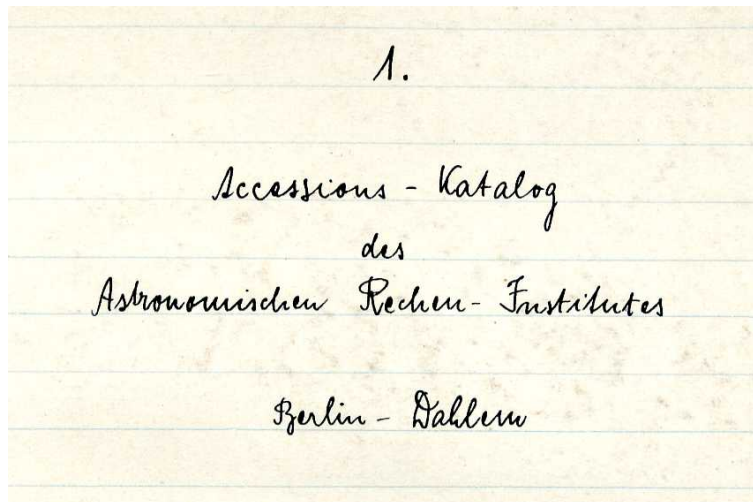 1.
Accessions - Katalog
des
Astronomischen Rechen - Institutes
Berlin - Dahlem